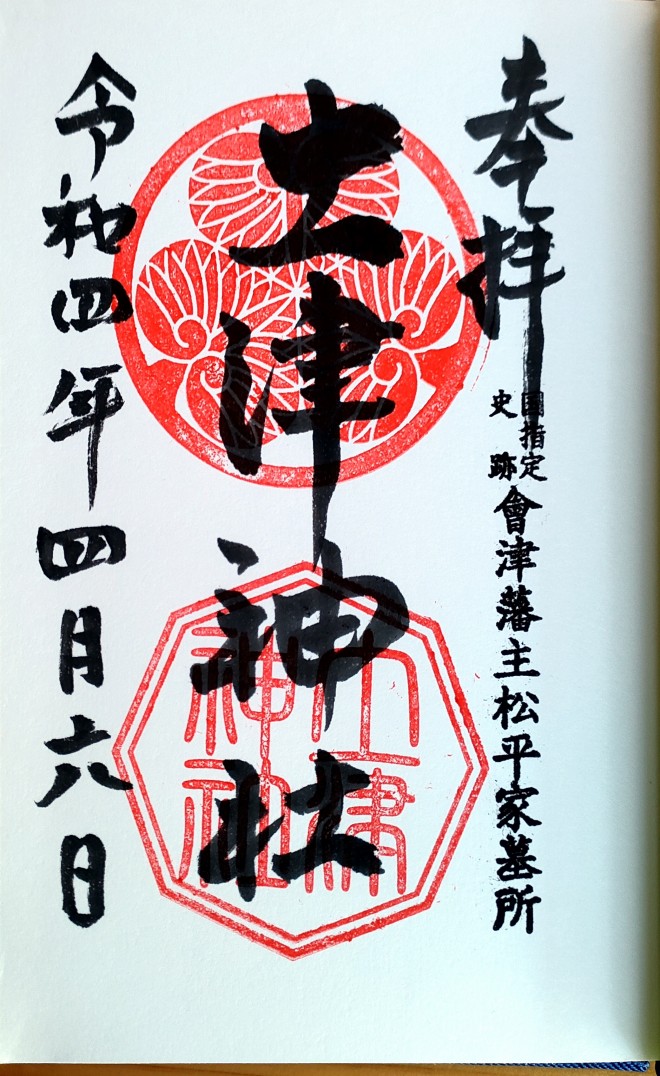 奉拝
國指定
史跡
會津藩主松平家墓所
土津神社
土津
神社
令和四年四月六日